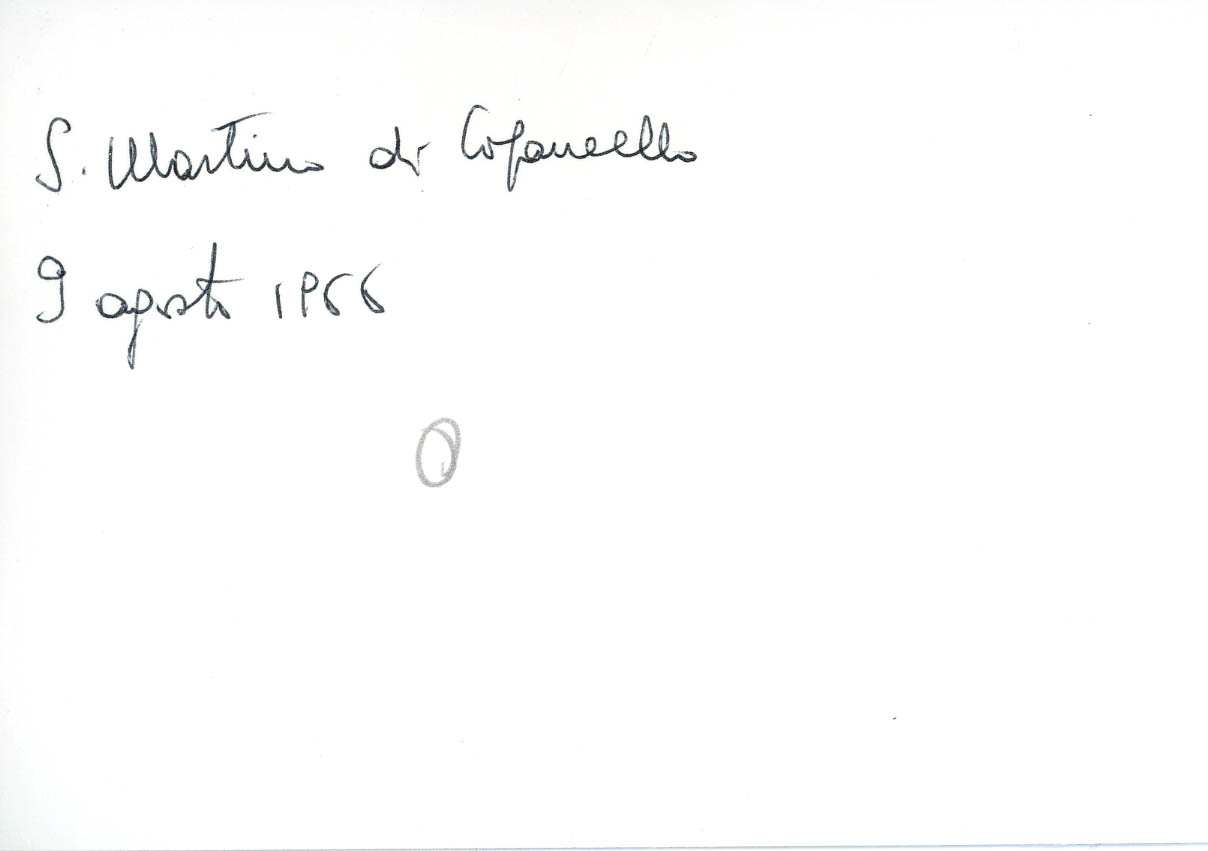 S. Martino di Copanello
9 agosto 1966